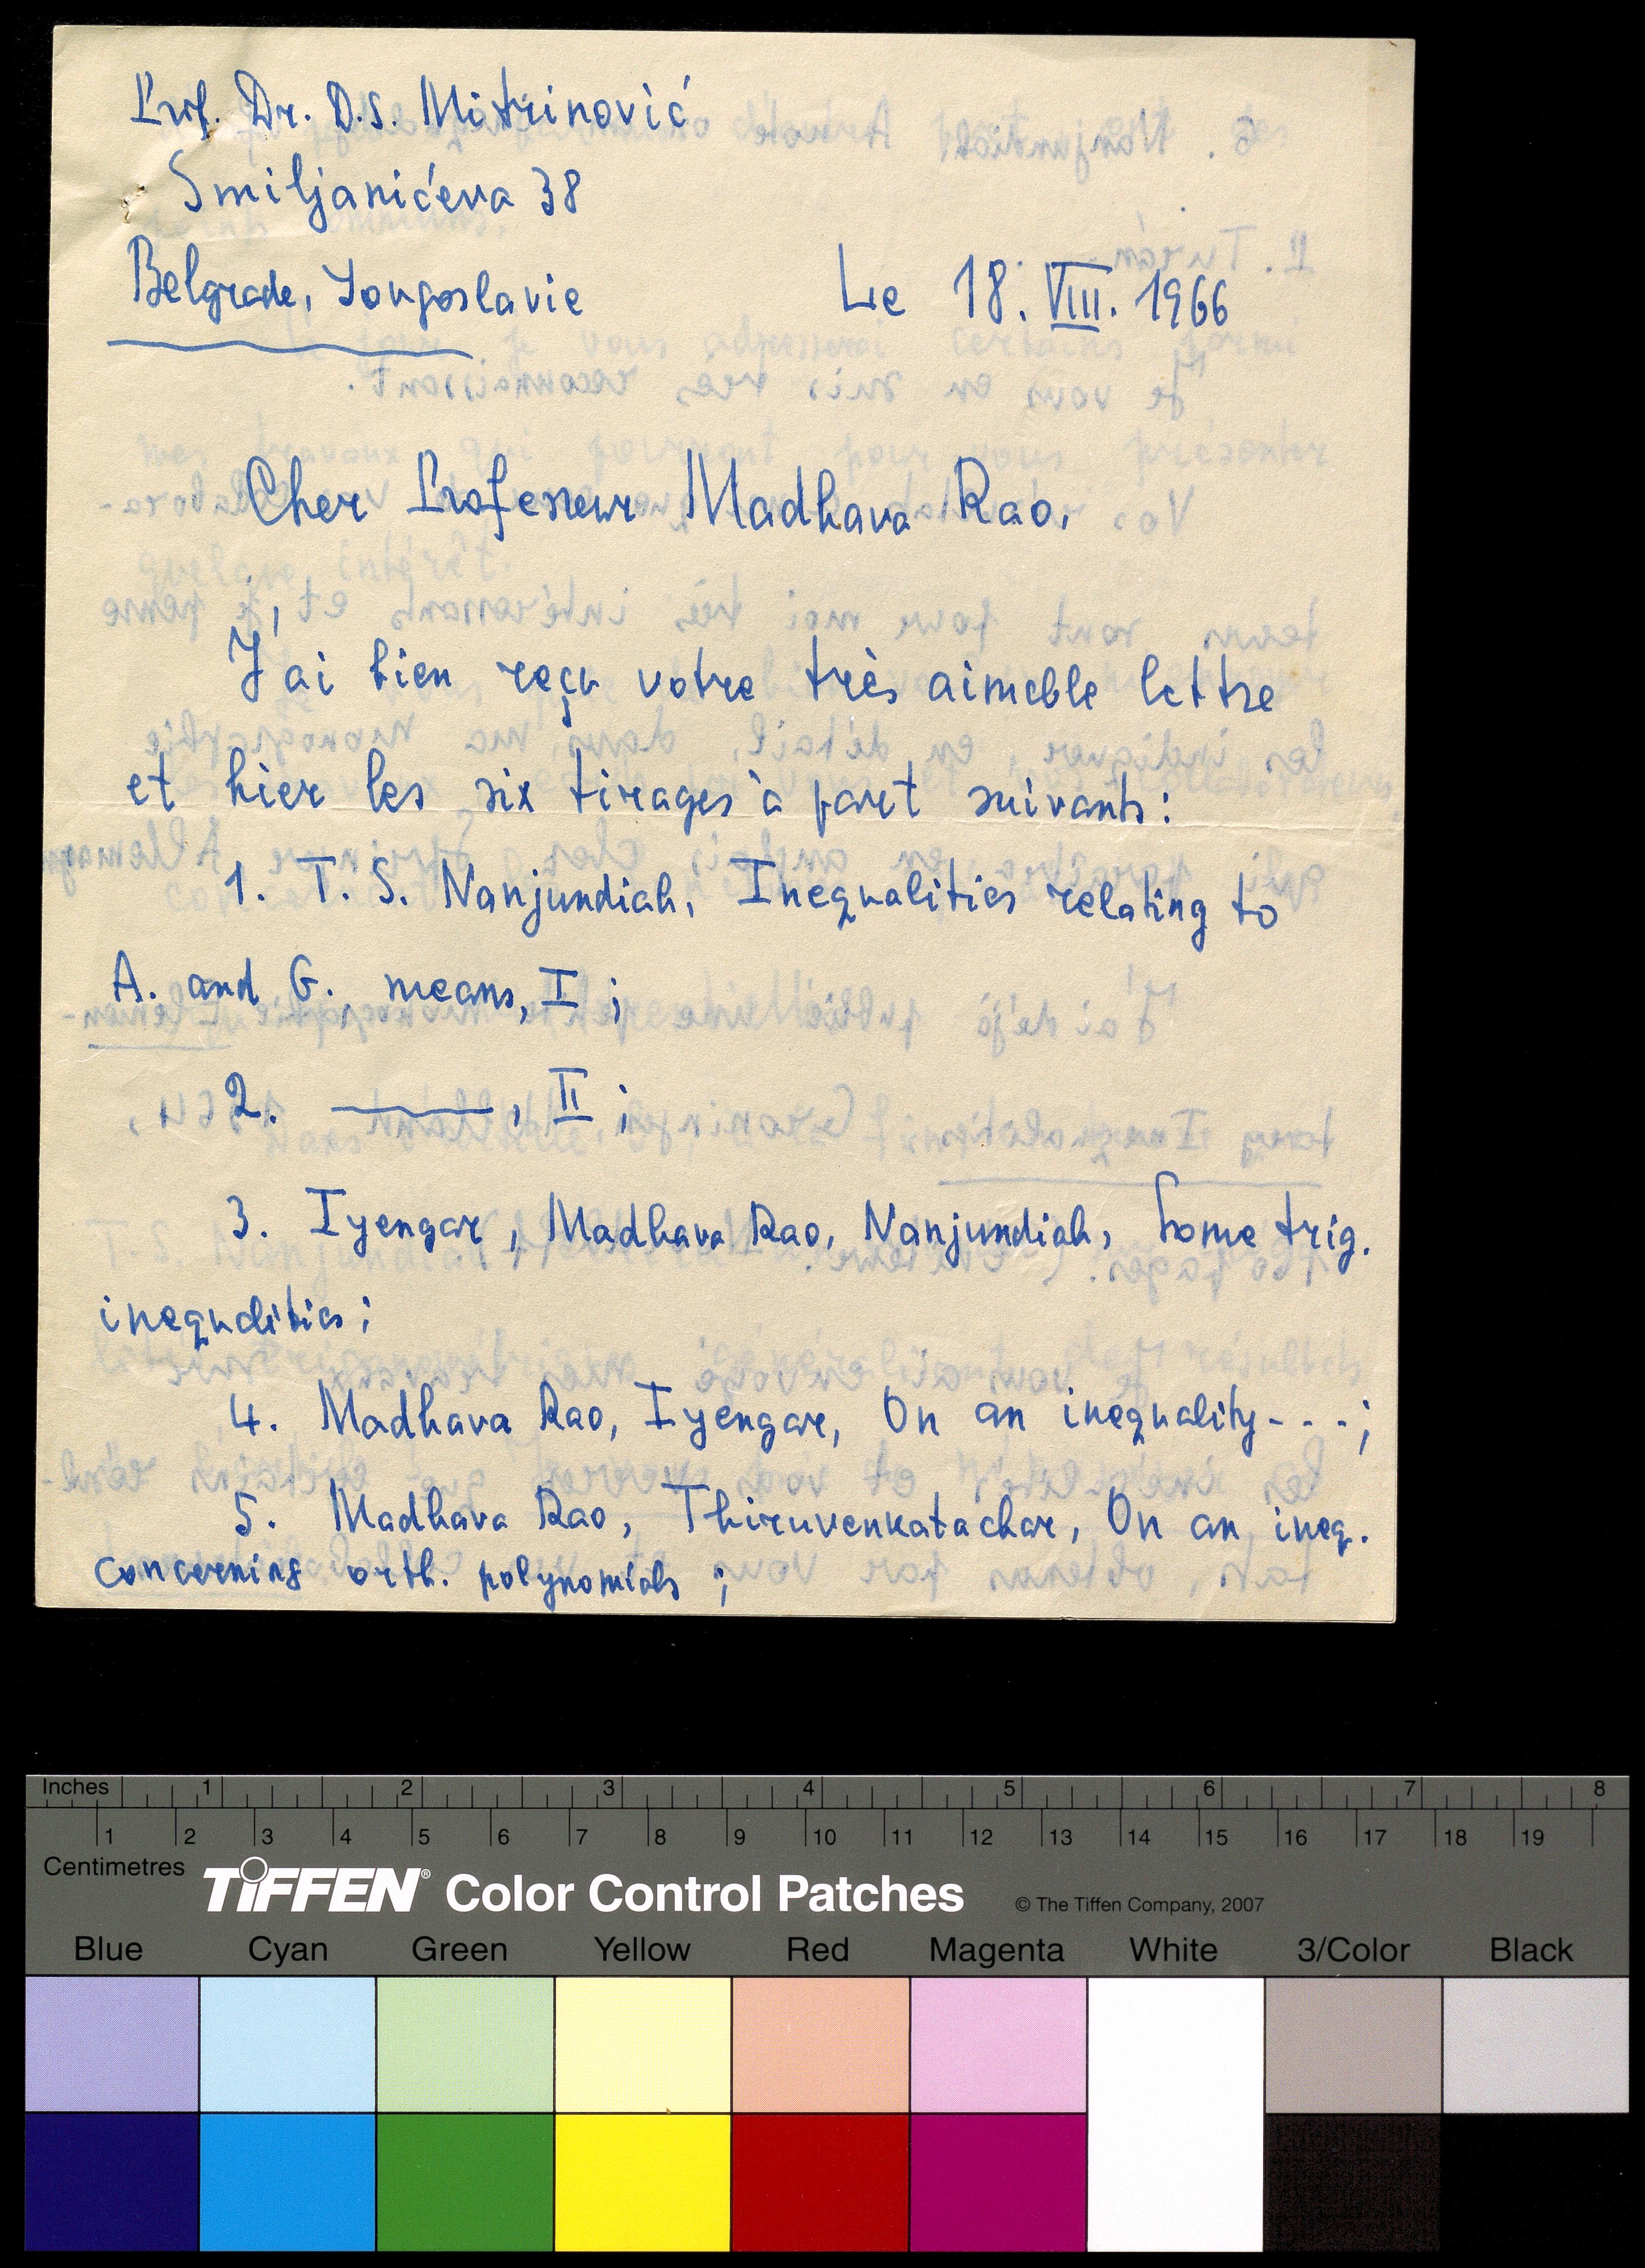 Prof. Dr. D.S. Mitrinović
Smiljanićeva 38
Belgrade, Yougoslavie
Le 18. VIII. 1966
Cher Professeur Madhava Rao,
J'ai bien reçu votre très aimable lettre
et hier les six tirages à part suivants:
1. T. S. Nanjundiah, Inequalities relating to
A. and G. means, I ;
2. ———, II ;
3. Iyengar, Madhava Rao, Nanjundiah, Some trig.
inequalities;
4. Madhava Rao, Iyengar, On an inequality - - - ;
5. Madhava Rao, Thiruvenkatachar, On an ineq.
concerning orth. polynomials ;
Inches 1 2 3 4 5 6 7 8
1 2 3 4 5 6 7 8 9 10 11 12 13 14 15 16 17 18 19
Centimetres
TIFFEN® Color Control Patches © The Tiffen Company, 2007
Blue Cyan Green Yellow Red Magenta White 3/Color Black